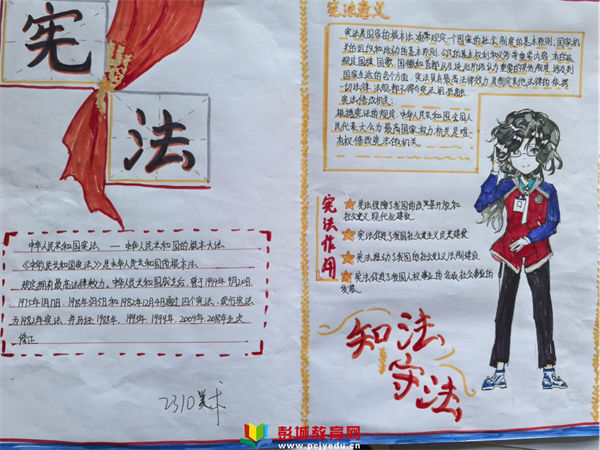 宪
法
中华人民共和国宪法 — 中华人民共和国的根本大法
《中华人民共和国宪法》是中华人民共和国的根本
规定拥有最高法律效力。中华人民共和国成立后,曾于1954年9月20日
1975年1月17日、1978年3月5日和1982年12月4日通过四个宪法,现行宪法
为1982年宪法,并历经1988年、1993年、1999年、2004年、2018年五次
修正
2310美术
宪法意义
宪法是国家的根本法,通常规定一个国家的社会制度的基本原则、国家机
关的组织和活动的基本原则,公民的基本权利和义务等重要内容
规定国旗、国歌、国徽和首都
国家生活的各个方面。宪法具有最高法律效力,是制定其他法律的依据
一切法律、法规都不得与宪法相抵触。
宪法修改机关:
根据宪法的规定,中华人民共和国全国人
民代表大会为最高国家权力机关是唯一
有权修改宪法的机关
宪法作用
宪法保障了我国的改革开放和
社会主义现代化建设
宪法促进了我国社会主义民主建设
宪法推动了我国的社会主义法制建设
宪法促进了我国人权事业和各项社会事业的
发展
知法
守法
彭城教育网
www.pcjyedu.cn